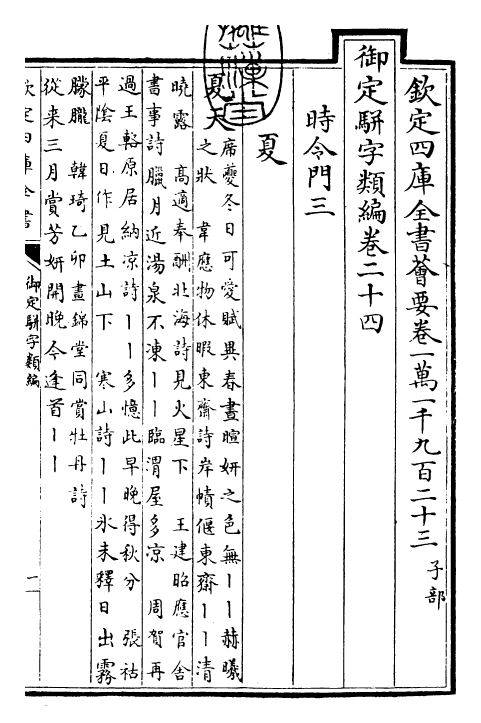 欽定四庫全書薈要卷一萬一千九百二十三 子部
御定騈字類編卷二十四
時令門三
夏
夏天
席夔冬日可愛賦異春晝暄妍之色無丨丨赫曦
之狀 韋應物休暇東齋詩岸幘偃東齋丨丨清
曉露 髙適奉酬北海詩見火星下 王建昭應官舍
書事詩臘月近湯泉不凍丨丨臨渭屋多凉 周賀再
過王輅原居納凉詩丨丨多憶此早晚得秋分 張祜
平陰夏日作見土山下 寒山詩丨丨氷未釋日出霧
朦朧 韓琦乙卯晝錦堂同賞牡丹詩
從来三月賞芳妍開晚今逢首丨丨
欽定四庫全書
御定騈字類編
一